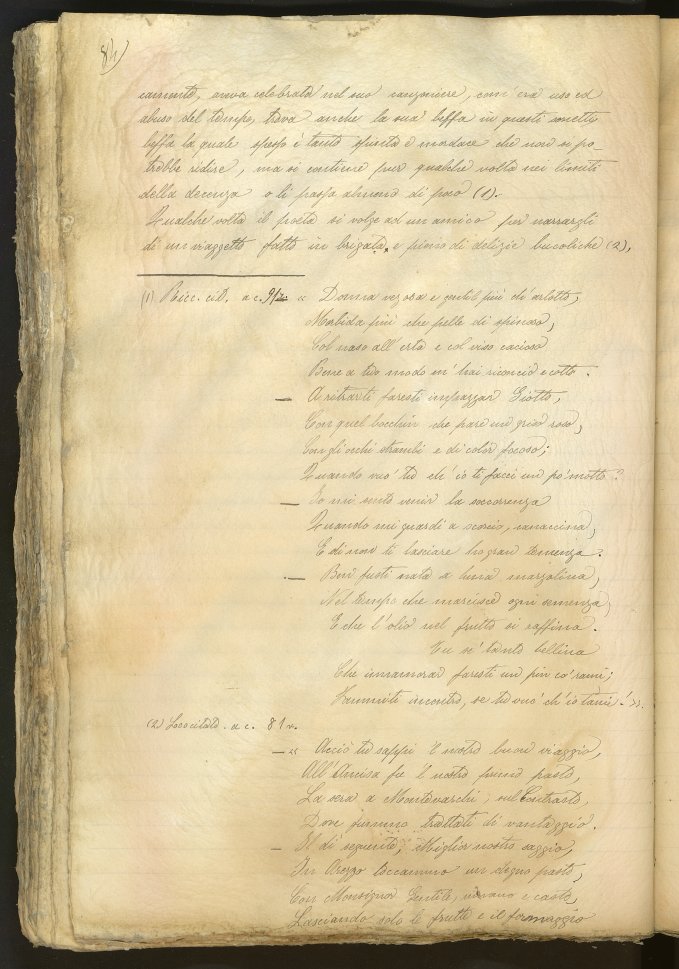 84)
camente, aveva celebrata nel suo canzoniere, com'era uso ed
abuso del tempo, trova anche la sua beffa in questi sonetti
beffa la quale spesso è tanto spinta e mordace che non si po
trebbe ridire, ma si contiene pur qualche volta nei limiti
della decenza o li passa almeno di poco (1).
Qualche volta il poeta si volge ad un amico per narrargli
di un viaggetto fatto in brigata, e pieno di delizie bucoliche (2),
(1) Ricc. cit. a c. « Donna vezosa e gentil più ch'arlotto,
Morbida più che pelle di spinoso,
Col naso all'erta e col viso cacioso
Bene a tuo modo m'hai riconcio e cotto.
— A ritrarti faresti impazzar Giotto,
Con quel bocchin che pare un
Con gli occhi strambi e di color focoso;
Quando vuo' tu ch'io ti facci un po' motto?
— Io mi sento venir la soccorrenza
Quando mi guardi a scorcio, canaccina,
E di non ti lasciare ho gran temenza.
— Ben fusti nata a luna marzolina,
Nel tempo che marcisce ogni semenza,
E che l'olio nel frutto si raffina.
Tu se' tanto bellina
Che innamorar faresti un pin co' rami;
Fammiti incontro, se tu vuo' ch'io t'ami! ».
(2) Loco citato. a c. 81 v.
— « Acciò tu sappi 'l nostro buon viaggio,
All'Ancisa fe 'l nostro primo pasto,
La sera a Montevarchi, sul Contrasto,
Dove fummo trattati di vantaggio.
— Il dì seguente, Miglior nostro saggio,
In Arezzo toccammo un degno pasto,
Con Monsignor Gentile, umano e casto,
Lasciando solo le frutte e il formaggio